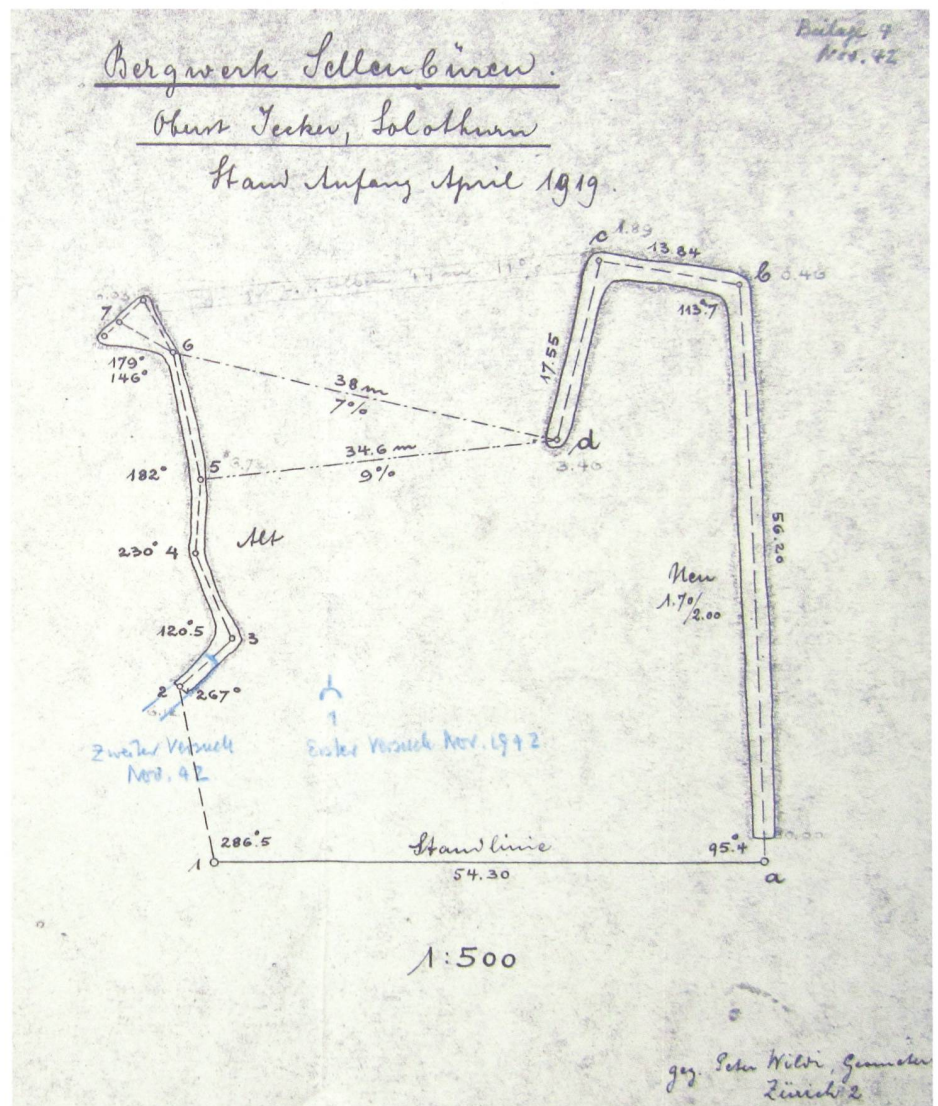 Beilage 9
Nov. 42
Bergwerk Sellenbüren.
Oberst Jecker, Solothurn
Stand Anfang April 1919.
c 1.89
13.84
b 0.46
113°7
17.55
7
6
179°
146°
38 m
7%
d
3.40
34.6 m
9%
182°
5
56.20
230° 4
Alt
Neu
1.70/2.00
120°5
3
2
267°
Zweiter Versuch
Nov. 42
1
Erster Versuch Nov. 1942
286°5
Standlinie
95°4
1
54.30
a
1:500
gez. Peter Wildi, Geometer
Zürich 2